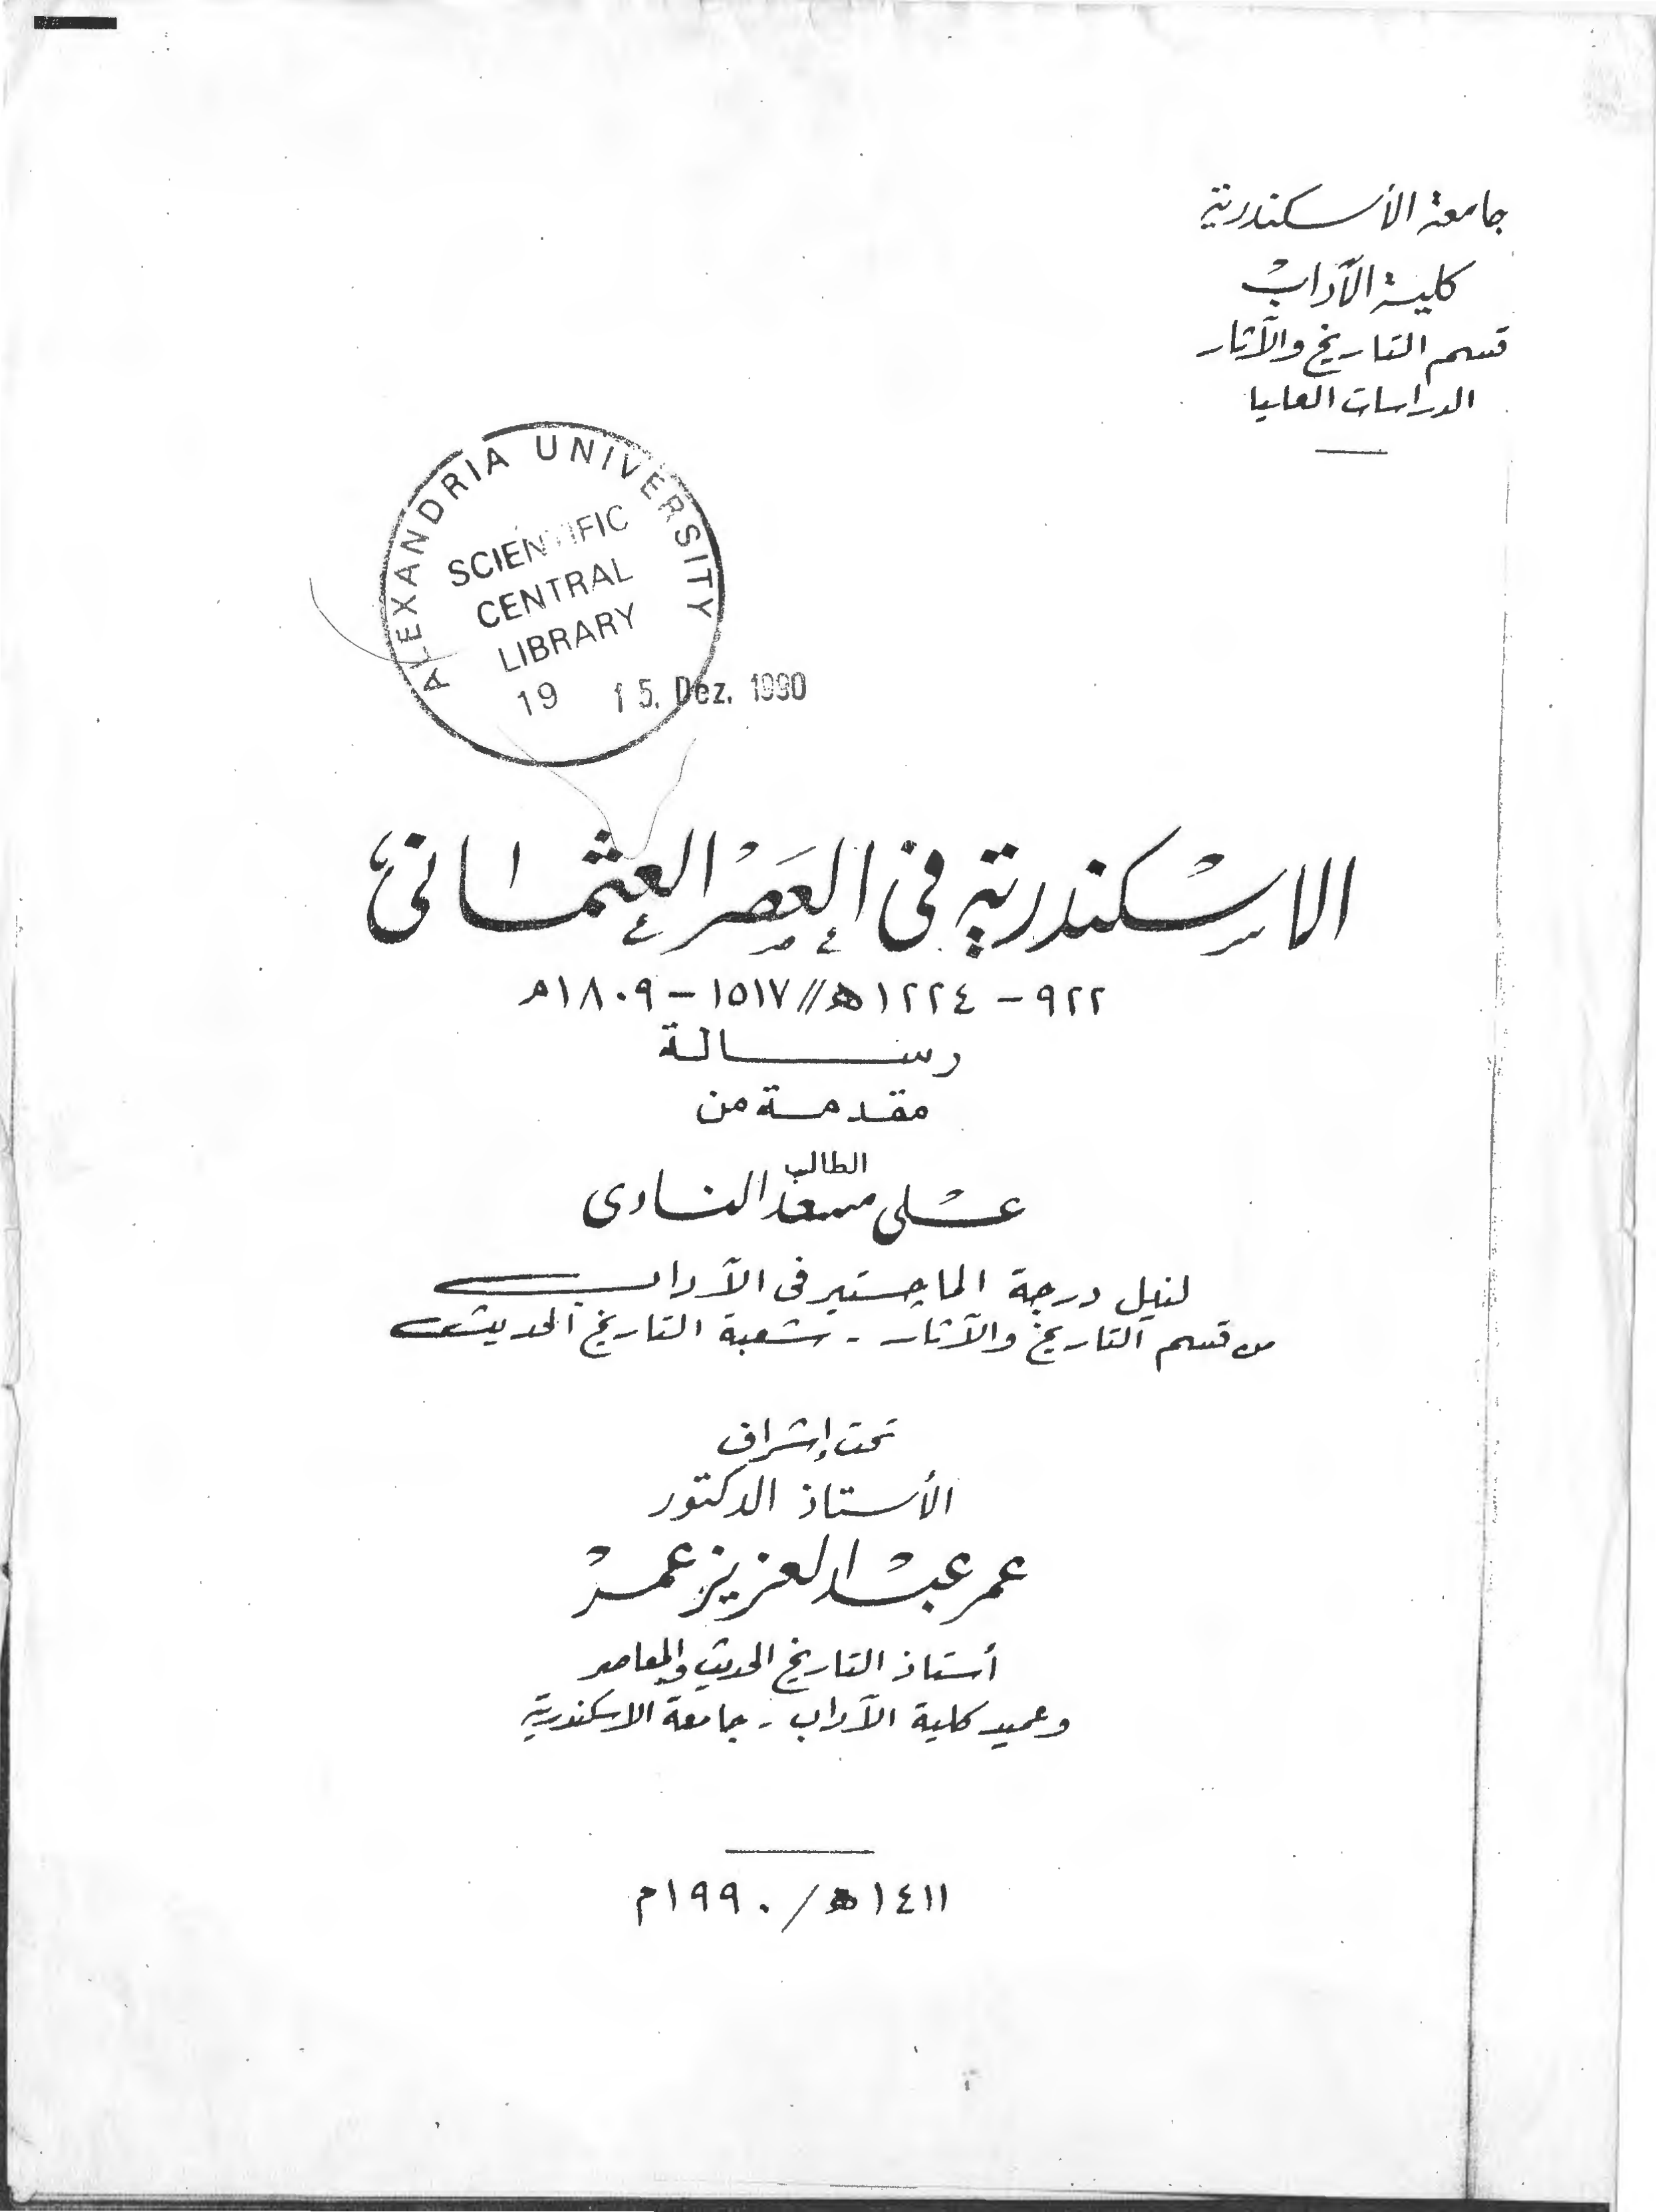 جامعة الأسكندرية
كلية الآداب
قسم التاريخ والآثار
الدراسات العليا
ALEXANDRIA UNIVERSITY
SCIENTIFIC
CENTRAL
LIBRARY
19 15. Dez. 1990
الاسكندرية فى العصر العثمانى
٩٢٢ - ١٢٢٤ه‍ // ١٥١٧ - ١٨٠٩م
رسالة
مقدمة من
الطالب
على مسعد النادى
لنيل درجة الماجستير فى الآداب
من قسم التاريخ والآثار - شعبة التاريخ الحديث
تحت إشراف
الأستاذ الدكتور
عمر عبد العزيز عمر
أستاذ التاريخ الحديث والمعاصر
وعميد كلية الآداب - جامعة الاسكندرية
١٤١١ه‍ / ١٩٩٠م